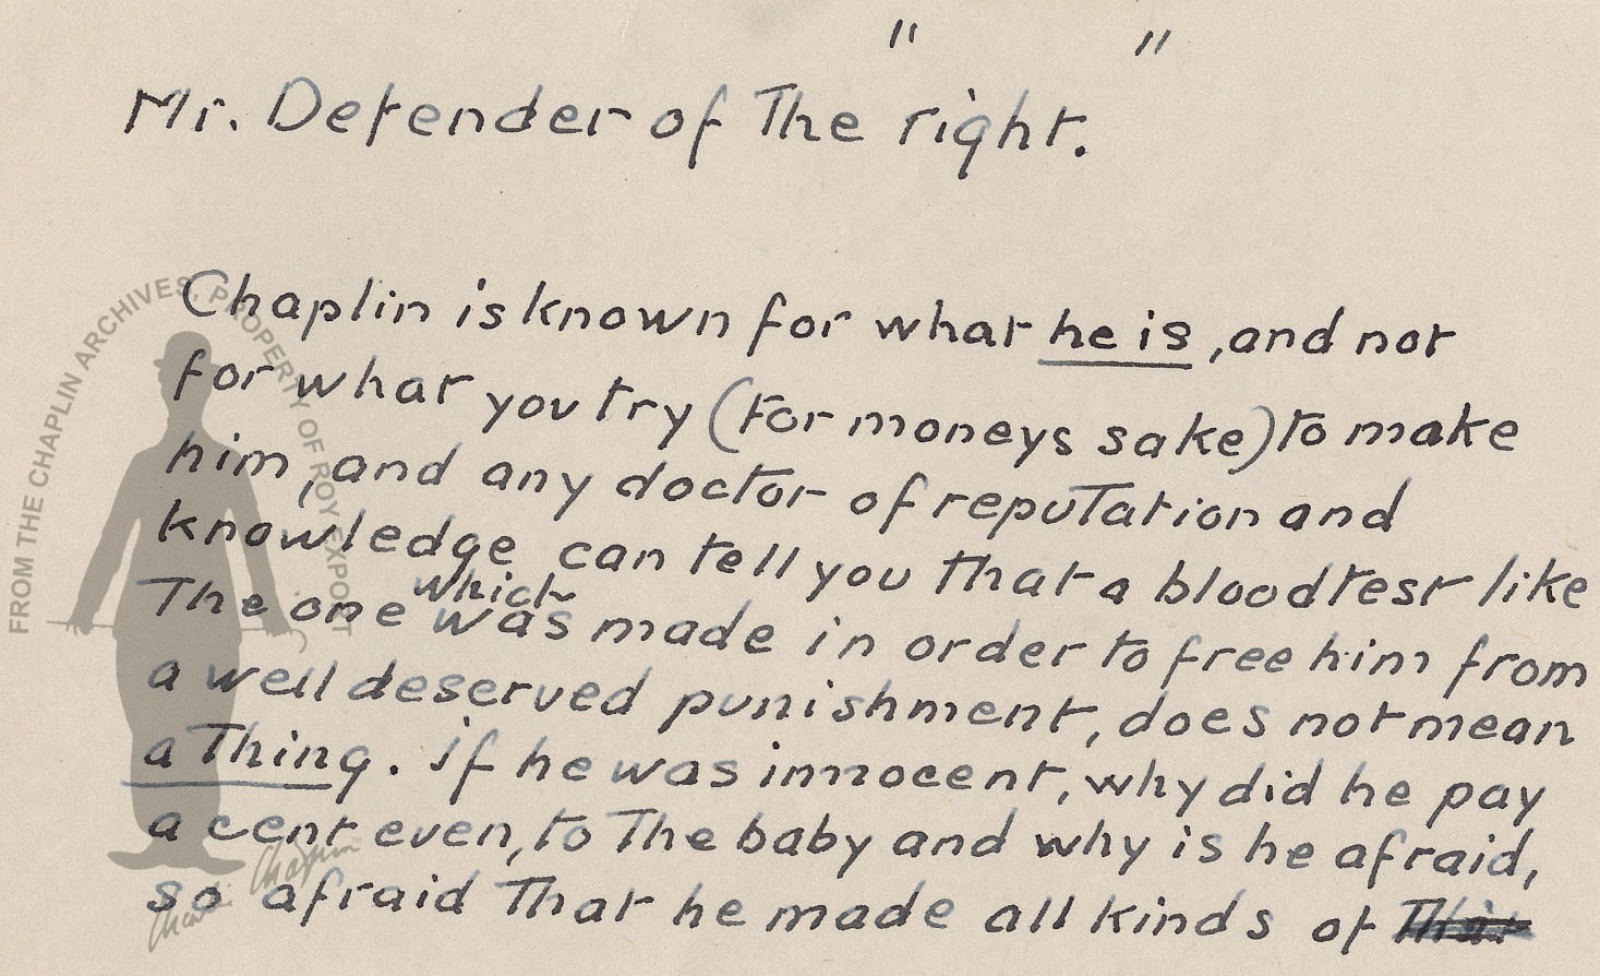 " "
Mr. Defender of The right.
Chaplin is known for what he is, and not
for what you try (for moneys sake) to make
him, and any doctor of reputation and
knowledge can tell you that a bloodtest like
The one which was made in order to free him from
a well deserved punishment, does not mean
a Thing. if he was innocent, why did he pay
a cent even, to The baby and why is he afraid,
so afraid That he made all kinds of
FROM THE CHAPLIN ARCHIVES, PROPERTY OF ROY EXPORT
Charlie Chaplin